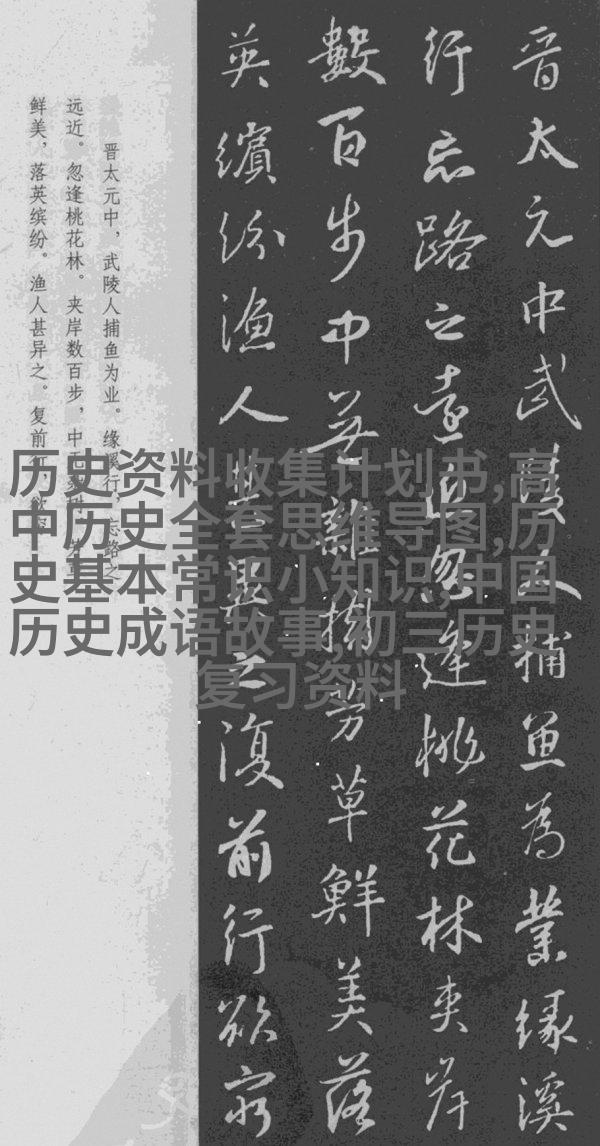 晉太元中武陵人捕魚為業緣溪
行忘路之遠近忽逢桃花林夾岸
數百步中無雜樹芳草鮮美落
英繽紛漁人甚異之復前行欲窮
晋太元中，武陵人捕鱼为业。缘溪行，忘路之
远近。忽逢桃花林。夹岸数百步，中无杂树，芳
鲜美，落英缤纷。渔人甚异之。复前行，欲穷
历史资料收集计划书,高
中历史全套思维导图,历
史基本常识小知识,中国
历史成语故事,初三历史
复习资料